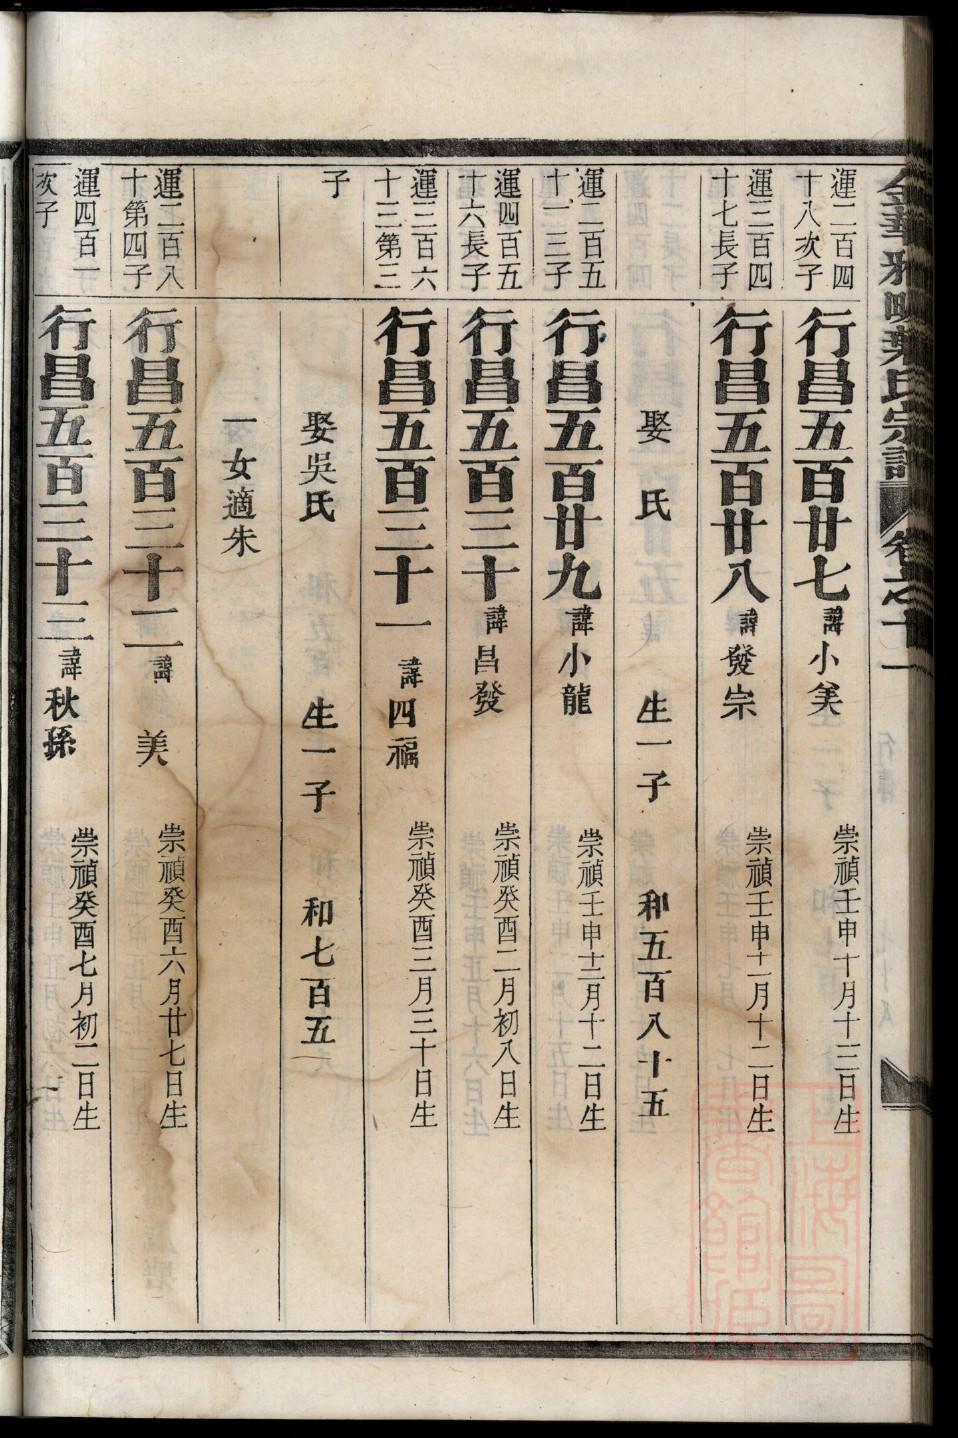 金華雅畈葉氏宗譜 卷之十一
運二百四十八次子
行昌五百廿七 諱小美 崇禎壬申十月十三日生
運三百四十七長子
行昌五百廿八 諱發宗 崇禎壬申十一月十二日生
娶 氏 生一子 和五百八十五
運二百五十一三子
行昌五百廿九 諱小龍 崇禎壬申十二月十二日生
運四百五十六長子
行昌五百三十 諱昌發 崇禎癸酉二月初八日生
運三百六十三第三子
行昌五百三十一 諱四福 崇禎癸酉三月三十日生
娶吳氏 生一子 和七百五
一女適朱
運二百八十第四子
行昌五百三十二 諱 美 崇禎癸酉六月廿七日生
運四百一次子
行昌五百三十三 諱秋孫 崇禎癸酉七月初二日生